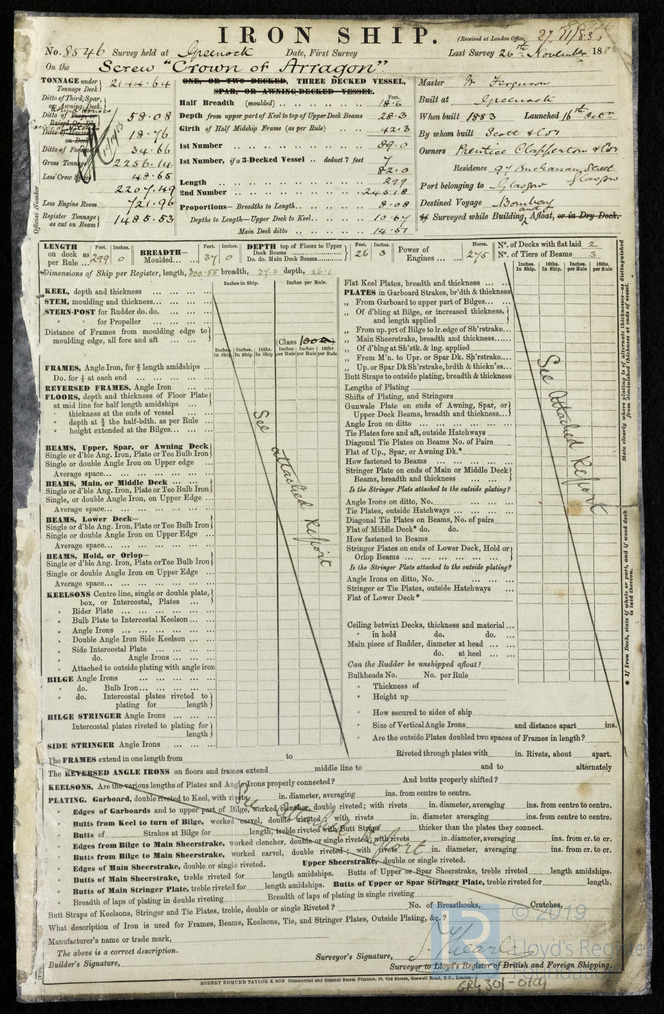 IRON SHIP.
(Received at London Office, 27/11/83)
No. 8546 Survey held at Greenock Date, First Survey Last Survey 26th November 188
On the Screw "Crown of Arragon"
TONNAGE under Tonnage Deck 2144.64
Ditto of Third, Spar, or Awning Deck
58.08
18.76
34.66
Gross Tonnage 2256.14
Less Crew 48.65
2207.49
Less Engine Room 721.96
Register Tonnage as cut on Beam 1485.53
Official Number
ONE, OR TWO DECKED, THREE DECKED VESSEL,
SPAR, OR AWNING DECKED VESSEL.
Feet.
Half Breadth (moulded) 18.6
Depth from upper part of Keel to top of Upper Deck Beams 28.3
Girth of Half Midship Frame (as per Rule) 42.3
1st Number 89.0
1st Number, if a 3-Decked Vessel deduct 7 feet 7
82.0
Length 299
2nd Number 24518
Proportions—Breadths to Length 8.08
Depths to Length—Upper Deck to Keel 10.67
Main Deck ditto 14.51
Master W. Ferguson
Built at Greenock
When built 1883 Launched 16th
By whom built Scott & Co
Owners Prentice Clapperton & Co
Residence 97 Buchanan Street Glasgow
Port belonging to Glasgow
Destined Voyage Bombay
If Surveyed while Building, Afloat, or in Dry Dock.
LENGTH on deck as per Rule 299 0
BREADTH—Moulded 37 0
DEPTH top of Floors to Upper Deck Beams
Do. do. Main Deck Beams 26 3
Power of Engines 275
Nº. of Decks with flat laid 2
Nº. of Tiers of Beams 3
Dimensions of Ship per Register, length, breadth, depth, 26.1
KEEL, depth and thickness
STEM, moulding and thickness
STERN-POST for Rudder do. do.
" for Propeller
Distance of Frames from moulding edge to moulding edge, all fore and aft
(Class 100A
FRAMES, Angle Iron, for ⅗ length amidships
Do. for ⅕ at each end
REVERSED FRAMES, Angle Iron
FLOORS, depth and thickness of Floor Plate at mid line for half length amidships
" thickness at the ends of vessel
" depth at ¾ the half-bdth. as per Rule
" height extended at the Bilges
BEAMS, Upper, Spar, or Awning Deck
Single or d'ble Ang. Iron, Plate or Tee Bulb Iron
Single or double Angle Iron on Upper edge
Average space
BEAMS, Main, or Middle Deck
Single or d'ble Ang. Iron, Plate or Tee Bulb Iron
Single, or double Angle Iron, on Upper Edge
Average space
BEAMS, Lower Deck—
Single or d'ble Ang. Iron, Plate or Tee Bulb Iron
Single or double Angle Iron on Upper Edge
Average space
BEAMS, Hold, or Orlop—
Single or d'ble Ang. Iron, Plate or Tee Bulb Iron
Single or double Angle Iron on Upper Edge
Average space
KEELSONS Centre line, single or double plate, box, or Intercostal, Plates
" Rider Plate
" Bulb Plate to Intercostal Keelson
" Angle Irons
" Double Angle Iron Side Keelson
" Side Intercostal Plate
" do. Angle Irons
" Attached to outside plating with angle iron
BILGE Angle Irons
" do. Bulb Iron
" do. Intercostal plates riveted to plating for length
BILGE STRINGER Angle Irons
Intercostal plates riveted to plating for length
SIDE STRINGER Angle Irons
See attached Report
Flat Keel Plates, breadth and thickness
PLATES in Garboard Strakes, br'dth & thickness
" From Garboard to upper part of Bilges
" Of d'bling at Bilge, or increased thickness, and length applied
" From up. prt of Bilge to lr. edge of Sh'rstrake
" Main Sheerstrake, breadth and thickness
" Of d'blng at Sh'stk. & lng. applied
" From M'n. to Upr. or Spar Dk. Sh'rstrake
" Up. or Spar Dk Sh'rstrake, brdth & thickn'ss
Butt Straps to outside plating, breadth & thickness
Lengths of Plating
Shifts of Plating, and Stringers
Gunwale Plate on ends of Awning, Spar, or Upper Deck Beams, breadth and thickness
Angle Iron on ditto
Tie Plates fore and aft, outside Hatchways
Diagonal Tie Plates on Beams No. of Pairs
Flat of Up., Spar, or Awning Dk.*
How fastened to Beams
Stringer Plate on ends of Main or Middle Deck Beams, breadth and thickness
Is the Stringer Plate attached to the outside plating?
Angle Irons on ditto, No.
Tie Plates, outside Hatchways
Diagonal Tie Plates on Beams, No. of pairs
Flat of Middle Deck* do. do.
How fastened to Beams
Stringer Plates on ends of Lower Deck, Hold or Orlop Beams
Is the Stringer Plate attached to the outside plating?
Angle Irons on ditto, No.
Stringer or Tie Plates, outside Hatchways
Flat of Lower Deck*
Ceiling betwixt Decks, thickness and material
" in hold do. do.
Main piece of Rudder, diameter at head
do. at heel
Can the Rudder be unshipped afloat?
Bulkheads No. No. per Rule
" Thickness of
" Height up
" How secured to sides of ship
" Size of Vertical Angle Irons and distance apart ins.
" Are the outside Plates doubled two spaces of Frames in length?
See Attached Report
The FRAMES extend in one length from to Riveted through plates with in. Rivets, about apart.
The REVERSED ANGLE IRONS on floors and frames extend middle line to and to alternately
KEELSONS. Are the various lengths of Plates and Angle Irons properly connected? And butts properly shifted?
PLATING. Garboard, double riveted to Keel, with rivets in. diameter, averaging ins. from centre to centre.
" Edges of Garboards and to upper part of Bilge, worked clencher, double riveted; with rivets in. diameter, averaging ins. from centre to centre.
" Butts from Keel to turn of Bilge, worked carvel, double riveted; with rivets in. diameter averaging ins. from centre to centre.
" Butts of Strakes at Bilge for length, treble riveted with Butt Straps thicker than the plates they connect.
" Edges from Bilge to Main Sheerstrake, worked clencher, double or single riveted; with rivets in. diameter, averaging ins. from cr. to cr.
" Butts from Bilge to Main Sheerstrake, worked carvel, double riveted; with rivets in. diameter, averaging ins. from cr. to cr.
" Edges of Main Sheerstrake, double or single riveted. Upper Sheerstrake, double or single riveted.
" Butts of Main Sheerstrake, treble riveted for length amidships. Butts of Upper or Spar Sheerstrake, treble riveted length amidships.
" Butts of Main Stringer Plate, treble riveted for length amidships. Butts of Upper or Spar Stringer Plate, treble riveted for length.
" Breadth of laps of plating in double riveting Breadth of laps of plating in single riveting
Butt Straps of Keelsons, Stringer and Tie Plates, treble, double or single Riveted? No. of Breasthooks, Crutches,
What description of Iron is used for Frames, Beams, Keelsons, Tie, and Stringer Plates, Outside Plating, &c.?
Manufacturer's name or trade mark,
The above is a correct description.
Builder's Signature, Surveyor's Signature,
Surveyor to Lloyd's Register of British and Foreign Shipping.
ROBERT EDMUND TAYLOR & SON
© 2019
Lloyd's Register